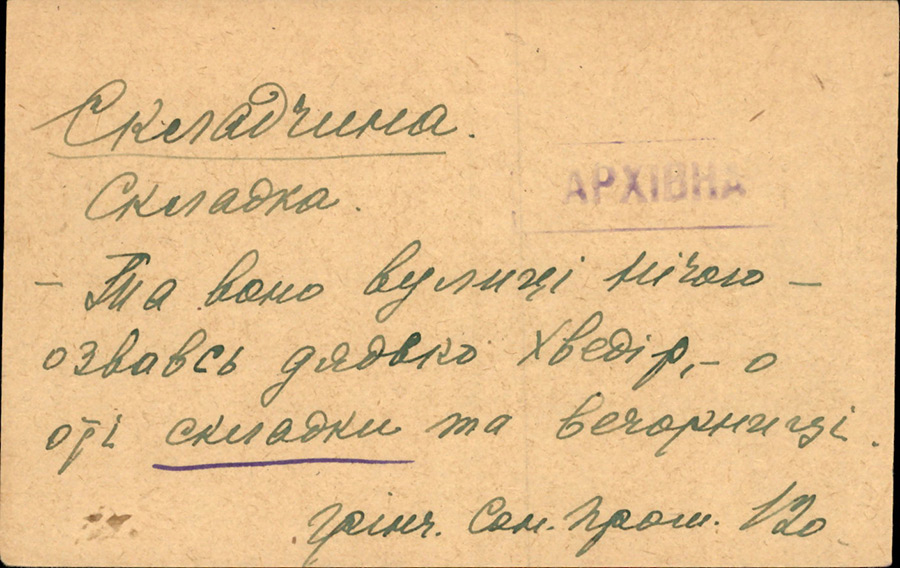 Складчина.
Складка.
АРХІВНА
– Та воно вулиці нічого –
озвавсь дядько Хведір, – о
оті складки та вечорниці.
Грінч. Сон. Пром. 120